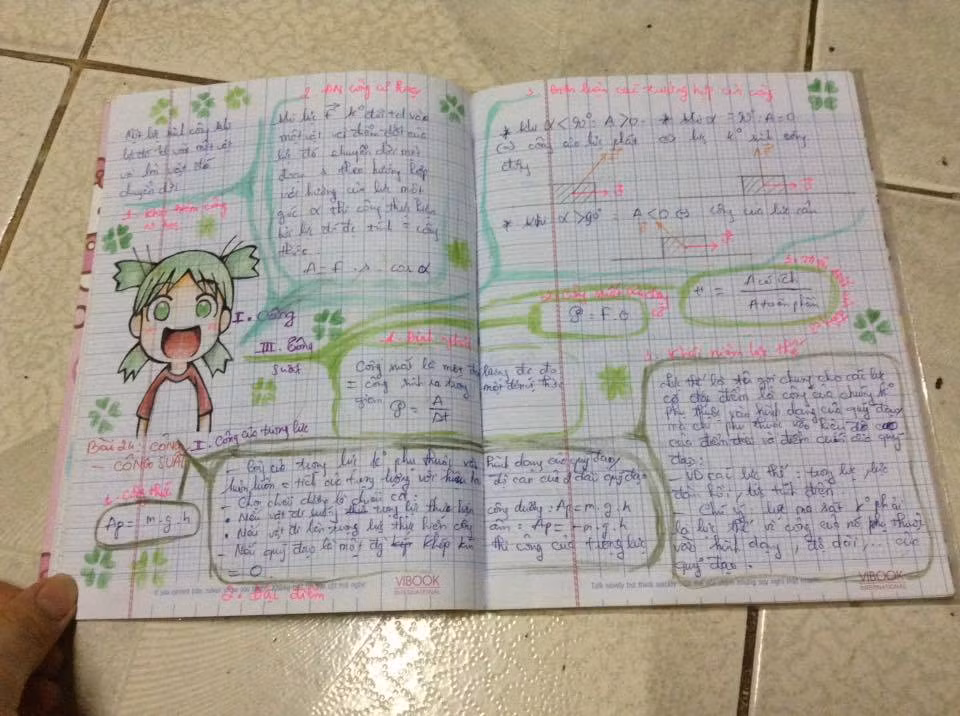 Một lực sinh công khi
lực đó td vào một vật
và làm vật đó
chuyển dời
1. Khái niệm công
cơ học
2. ĐN công cơ học
Khi lực F k° đổi td vào
một vật và điểm đặt của
lực đó chuyển dời một
đoạn s theo hướng hợp
với hướng của lực một
góc α thì công thực hiện
bởi lực đó đc tính = công
thức
A = F . s . cos α
I. Công
III. Công
suất
1. Định nghĩa
Công suất là một đại lượng đc đo
= công sinh ra trong một đơn vị thời
gian
P = A / Δt
Bài 24: CÔNG
- CÔNG SUẤT
II. Công của trọng lực
1. Công thức
Ap = m.g.h
- Công của trọng lực k° phụ thuộc vào hình dạng của quỹ đạo,
luôn luôn = tích của trọng lượng với hiệu hai độ cao của 2 đầu quỹ đạo
- Chọn chiều dương là chiều
• Nếu vật đi xuống thì trọng lực thực hiện công dương: Ap = m.g.h
• Nếu vật đi lên trọng lực thực hiện công âm: Ap = - m.g.h
- Nếu quỹ đạo là một khép kín thì công của trọng lực
= 0
2. Đặc điểm
3. Biện luận các trường hợp của công
* khi α < 90° A > 0 * khi α = 90° A = 0
(=) công của lực phát (=) lực k° sinh công
động
F
s
* khi α > 90° A < 0 (=) công của lực cản
H = A có ích / A toàn phần
P = F.v
3. Khái niệm lực thế
Lực thế là tên gọi chung cho các lực
có đặc điểm là công của chúng k°
phụ thuộc vào hình dạng của quỹ đạo
mà chỉ phụ thuộc vào hiệu độ cao
của điểm đầu và điểm cuối của quỹ
đạo:
- VD các lực thế: trọng lực, lực
đàn hồi, lực tĩnh điện
- Chú ý lực ma sát k° phải
là lực thế vì công của nó phụ thuộc
vào hình dạng, độ dài, ... của
quỹ đạo.
VIBOOK
INTERNATIONAL
VIBOOK
INTERNATIONAL